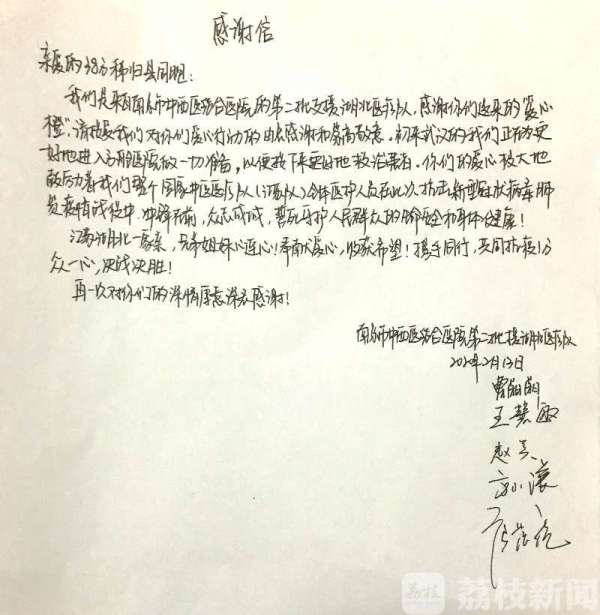 感谢信
亲爱的38万秭归县同胞：
我们是来自南京市中西医结合医院的第二批支援湖北医疗队，感谢你们送来的“爱心
橙”，请接受我们对你们爱心行动的由衷感谢和崇高敬意。初来武汉的我们正在为更
好地进入方舱医院做一切准备，以便接下来更好地救治患者。你们的爱心极大地
鼓励着我们整个国家中医医疗队（江苏队）全体医护人员在此次抗击新型冠状病毒肺
炎疫情战役中，冲锋在前，众志成城，誓死守护人民群众的生命安全和身体健康！
江苏湖北一家亲，兄弟姐妹心连心！奉献爱心，收获希望！携手同行，共同抗疫！万
众一心，决战决胜！
再一次对你们的深情厚意深表感谢！
南京市中西医结合医院第二批援湖北医疗队
2020年2月13日
曹
王慧敏
赵
孙
荔枝 荔枝新闻